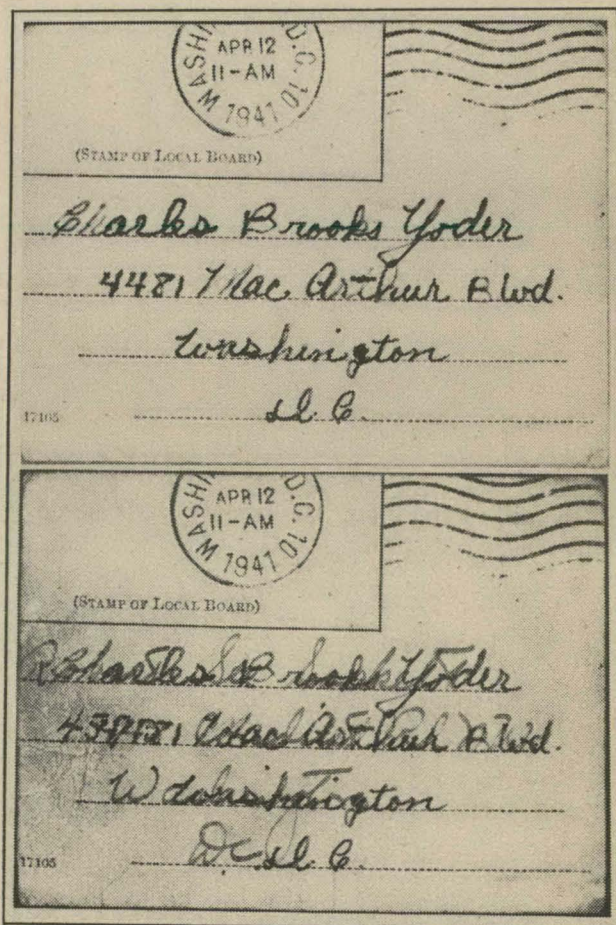 WASHI D.C. 10
APR 12
11-AM
1941
(STAMP OF LOCAL BOARD)
Charles Brooks Yoder
4481 Mac Arthur Blvd.
Washington
D. C.
17105
WASHI D.C. 10
APR 12
11-AM
1941
(STAMP OF LOCAL BOARD)
Charles Brooks Yoder
4481 Mac Arthur Blvd.
Washington
D. C.
17105